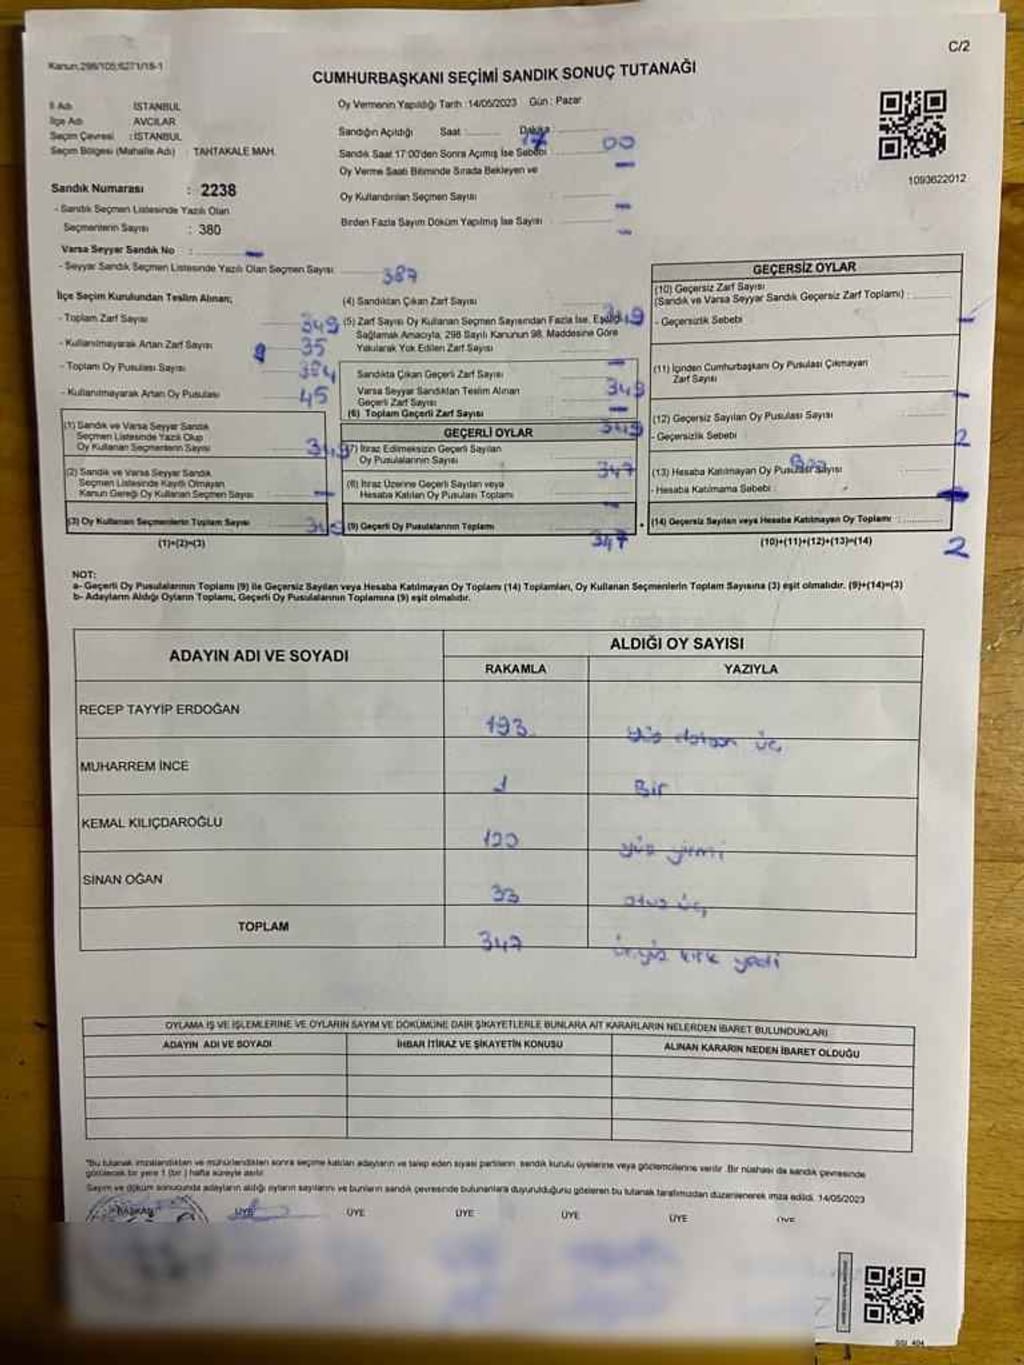 C/2
Kanun,298/105;6271/18-1
CUMHURBAŞKANI SEÇİMİ SANDIK SONUÇ TUTANAĞI
İl Adı : İSTANBUL
İlçe Adı : AVCILAR
Seçim Çevresi : İSTANBUL
Seçim Bölgesi (Mahalle Adı) : TAHTAKALE MAH.
Sandık Numarası : 2238
- Sandık Seçmen Listesinde Yazılı Olan
Seçmenlerin Sayısı : 380
Varsa Seyyar Sandık No : -
- Seyyar Sandık Seçmen Listesinde Yazılı Olan Seçmen Sayısı
387
Oy Vermenin Yapıldığı Tarih :14/05/2023 Gün : Pazar
Sandığın Açıldığı Saat Dakika
17 00
Sandık Saat 17:00'den Sonra Açımış İse Sebebi
Oy Verme Saati Bitiminde Sırada Bekleyen ve
Oy Kullandırılan Seçmen Sayısı :
Birden Fazla Sayım Döküm Yapılmış İse Sayısı
1093622012
İlçe Seçim Kurulundan Teslim Alınan;
- Toplam Zarf Sayısı
- Kullanılmayarak Artan Zarf Sayısı 35
- Toplam Oy Pusulası Sayısı
- Kullanılmayarak Artan Oy Pusulası 45
(1) Sandık ve Varsa Seyyar Sandık
Seçmen Listesinde Yazılı Olup
Oy Kullanan Seçmenlerin Sayısı
(2) Sandık ve Varsa Seyyar Sandık
Seçmen Listesinde Kayıtlı Olmayan
Kanun Gereği Oy Kullanan Seçmen Sayısı -
(3) Oy Kullanan Seçmenlerin Toplam Sayısı
(1)+(2)=(3)
(4) Sandıktan Çıkan Zarf Sayısı
(5) Zarf Sayısı Oy Kullanan Seçmen Sayısından Fazla İse,
Sağlamak Amacıyla, 298 Sayılı Kanunun 98. Maddesine Göre
Yakılarak Yok Edilen Zarf Sayısı
Sandıkta Çıkan Geçerli Zarf Sayısı 349
Varsa Seyyar Sandıktan Teslim Alınan
Geçerli Zarf Sayısı -
(6) Toplam Geçerli Zarf Sayısı 349
GEÇERLİ OYLAR
(7) İtiraz Edilmeksizin Geçerli Sayılan
Oy Pusulalarının Sayısı 347
(8) İtiraz Üzerine Geçerli Sayılan veya
Hesaba Katılan Oy Pusulası Toplamı -
(9) Geçerli Oy Pusulalarının Toplamı 347
GEÇERSİZ OYLAR
(10) Geçersiz Zarf Sayısı
(Sandık ve Varsa Seyyar Sandık Geçersiz Zarf Toplamı) :
- Geçersizlik Sebebi -
(11) İçinden Cumhurbaşkanı Oy Pusulası Çıkmayan
Zarf Sayısı -
(12) Geçersiz Sayılan Oy Pusulası Sayısı
- Geçersizlik Sebebi : 2
(13) Hesaba Katılmayan Oy Pusulası Sayısı
- Hesaba Katılmama Sebebi :
(14) Geçersiz Sayılan veya Hesaba Katılmayan Oy Toplamı :
(10)+(11)+(12)+(13)=(14) 2
NOT:
a- Geçerli Oy Pusulalarının Toplamı (9) ile Geçersiz Sayılan veya Hesaba Katılmayan Oy Toplamı (14) Toplamları, Oy Kullanan Seçmenlerin Toplam Sayısına (3) eşit olmalıdır. (9)+(14)=(3)
b- Adayların Aldığı Oyların Toplamı, Geçerli Oy Pusulalarının Toplamına (9) eşit olmalıdır.
ADAYIN ADI VE SOYADI ALDIĞI OY SAYISI
RAKAMLA YAZIYLA
RECEP TAYYİP ERDOĞAN 193 yüz doksan üç
MUHARREM İNCE 1 Bir
KEMAL KILIÇDAROĞLU 120 yüz yirmi
SİNAN OĞAN 33 otuz üç
TOPLAM 347 üçyüz kırk yedi
OYLAMA İŞ VE İŞLEMLERİNE VE OYLARIN SAYIM VE DÖKÜMÜNE DAİR ŞİKAYETLERLE BUNLARA AİT KARARLARIN NELERDEN İBARET BULUNDUKLARI
ADAYIN ADI VE SOYADI İHBAR İTİRAZ VE ŞİKAYETİN KONUSU ALINAN KARARIN NEDEN İBARET OLDUĞU
"Bu tutanak imzalandıktan ve mühürlendikten sonra seçime katılan adayların ve talep eden siyasi partilerin sandık kurulu üyelerine veya gözlemcilerine verilir. Bir nüshası da sandık çevresinde
görülecek bir yere 1 (bir ) hafta süreyle asılır.
Sayım ve döküm sonucunda adayların aldığı oyların sayılarını ve bunların sandık çevresinde bulunanlara duyurulduğunu gösteren bu tutanak tarafımızdan düzenlenerek imza edildi. 14/05/2023
BAŞKAN ÜYE ÜYE ÜYE ÜYE ÜYE ÜYE